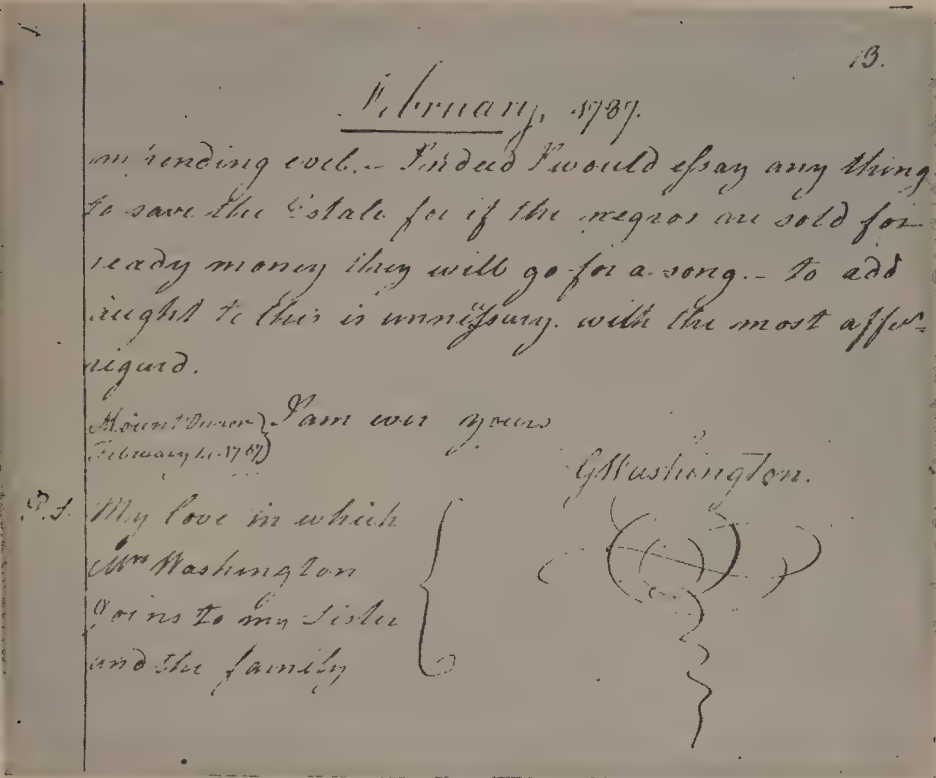 13.
February, 1787.
impending evil. – Indeed I would essay any thing
to save the Estate for if the negros are sold for
ready money they will go for a song. – to add
aught to this is unnessary. with the most affec
regard.
I am ever yours
Mount Vernon
February 1787
GWashington.
P.S. My love in which
Mrs Washington
Joins to my Sister
and the family